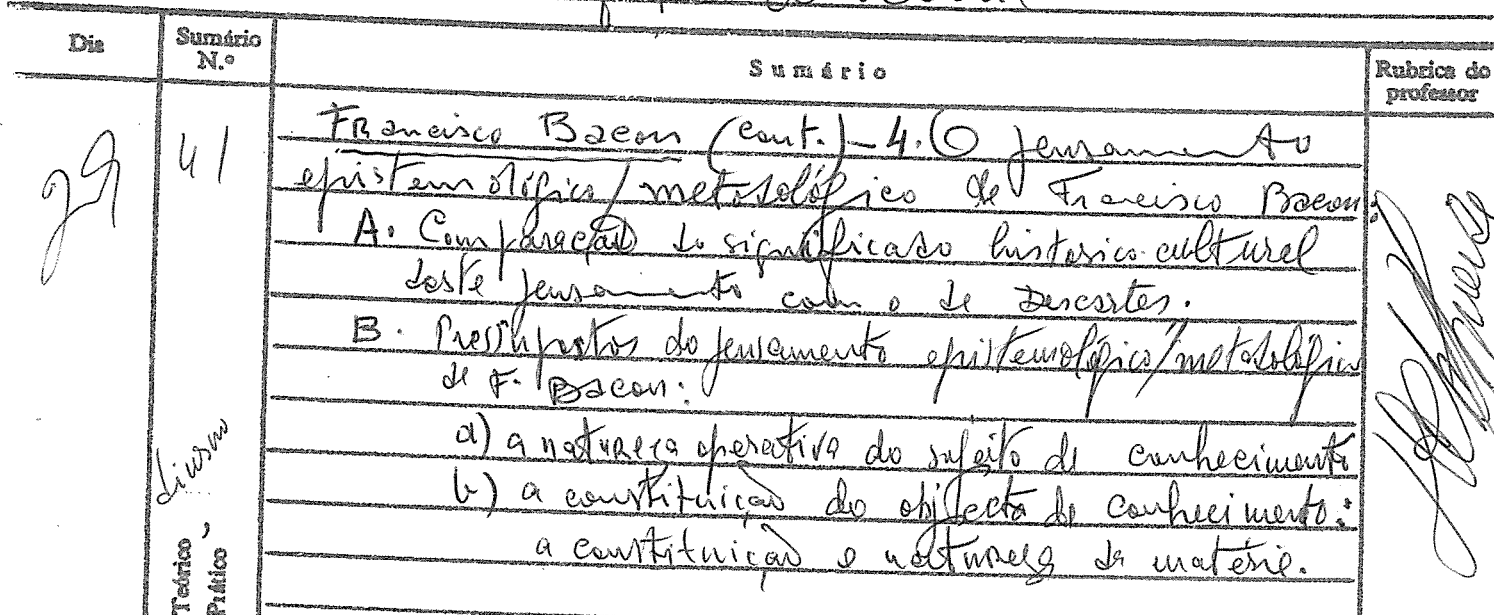 Dia
Sumário N.º
Sumário
Rubrica do professor
29
41
Francisco Bacon (cont.) – 4. O pensamento
epistemológico/metodológico de Francisco Bacon:
A. Comparação do significado histórico-cultural
deste pensamento com o de Descartes.
B. Pressupostos do pensamento epistemológico/metodológico
de F. Bacon:
a) a natureza operativa do sujeito de conhecimento
b) a constituição do objecto do conhecimento:
a constituição e natureza da matéria.
diurno
Teórico,
Prático